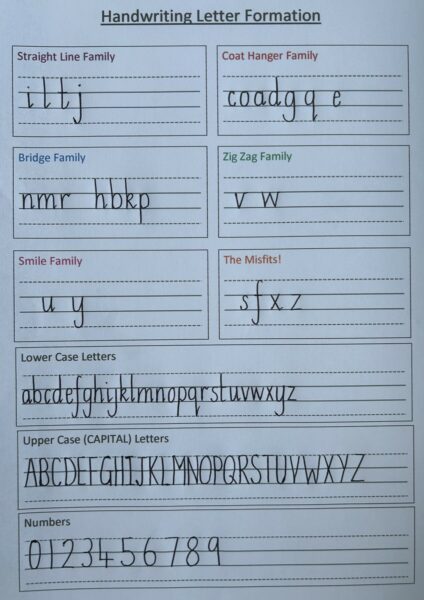 Handwriting Letter Formation
Straight Line Family
i l t j
Coat Hanger Family
c o a d g q e
Bridge Family
n m r h b k p
Zig Zag Family
v w
Smile Family
u y
The Misfits!
s f x z
Lower Case Letters
abcdefghijklmnopqrstuvwxyz
Upper Case (CAPITAL) Letters
ABCDEFGHIJKLMNOPQRSTUVWXYZ
Numbers
0123456789